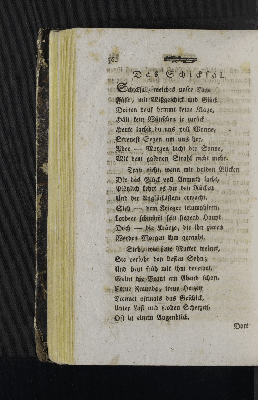 Das Schicksal.
Schicksal, welches unsre Tage
Füllt, mit Mißgeschick und Glück
Deinen Lauf hemmt keine Klage,
Hält kein Wünschen je zurück.
Heute lachst du uns voll Wonne,
Streuest Segen um uns her,
Aber — Morgen lacht der Sonne,
Mit dem goldnen Strahl nicht mehr.
Trau nicht, wenn mit holden Blicken
Dir das Glück voll Anmuth lacht,
Plötzlich kehrt es dir den Rücken
Und der Unglückssturm erwacht.
Sieh — dem Krieger triumphirend
Lorbeer schmückt sein siegend Haupt
Doch — die Kränze, die ihn zieren
Werden Morgen ihm geraubt.
Sieh, wie jene Mutter weinet,
Sie verlohr den besten Sohn;
Und heut früh mit ihm vereinet,
Geht die Braut am Abend schon.
Treue Freunde, treue Herzen
Trennet oftmals das Geschick,
Unter Lust und frohen Scherzen,
Oft in einem Augenblick.
Dort